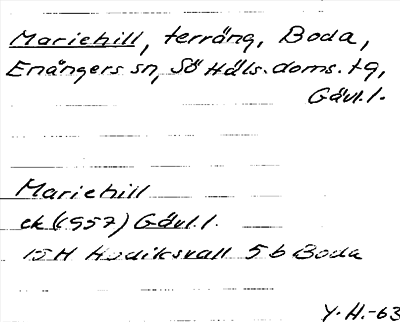 Mariehill, terräng, Boda,
Enångers sn, Sö Häls. doms. tg,
Gävl. l.
Mariehill
ek (1957) Gävl. l.
15H Hudiksvall 5b Boda
Y. H.-63